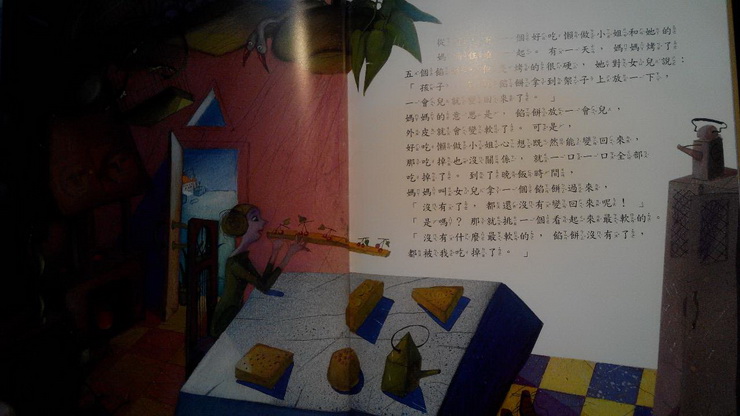 從 個好吃懶做小姐和她的
媽 起。有一天，媽媽烤了
五個餡 烤的很硬，她對女兒說：
「孩子 餡餅拿到架子上放一下，
一會兒就變回來了。」
媽媽的意思是，餡餅放一會兒，
外皮就會變軟了。可是，
好吃懶做小姐心想既然能變回來，
那吃掉也沒關係，就一口一口全部
吃掉了。到了晚飯時間，
媽媽叫女兒拿一個餡餅過來，
「沒有了，都還沒有變回來呢！」
「是嗎？那就挑一個看起來最軟的」
「沒有什麼最軟的，餡餅沒有了，
都被我吃掉了。」